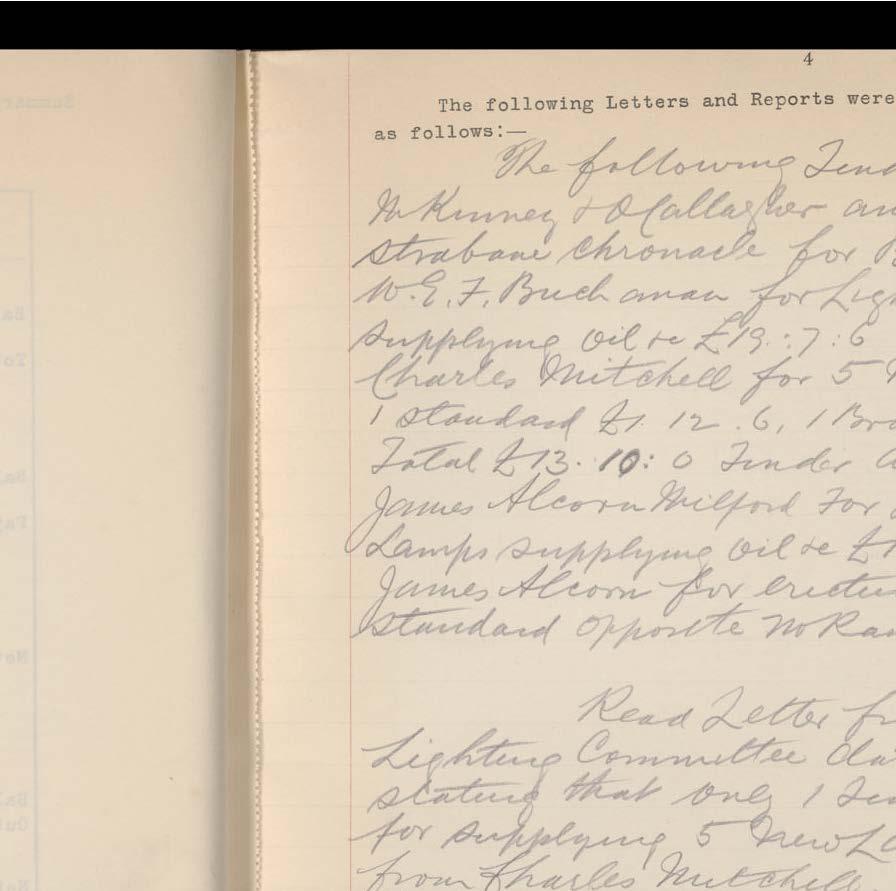 4
The following Letters and Reports were
as follows:—
The following Tend
McKinney & O'Callagher an
strabane chronacle for
W. E. F. Buchanan for Lig
supplying oil &c £19.:7:6
Charles Mitchell for 5
1 standard £1. 12. 6, 1 Bra
Total £13. 10: 0 Tender
James Alcorn Milford For
Lamps supplying oil &c
James Alcorn for erectin
standard opposite
Read Letter fr
Lighting Committee dat
stating that only 1 Ten
for supplying 5 new La
from Charles Mitchell